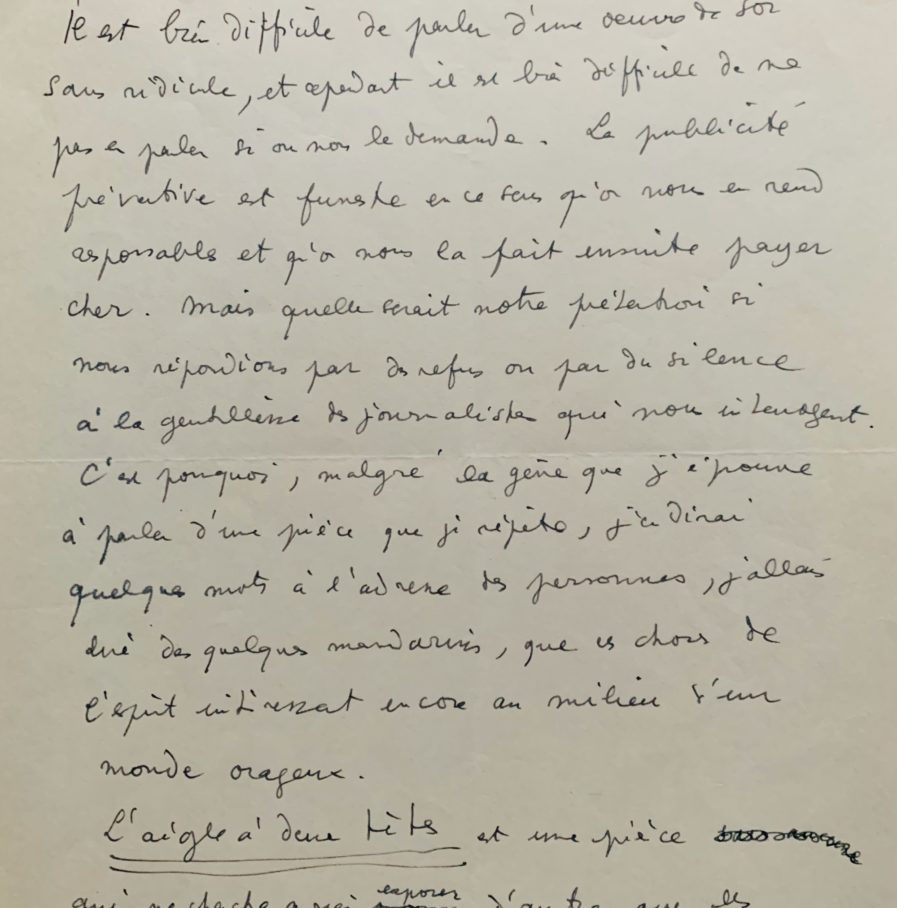 Il est bien difficile de parler d'une oeuvre de soi
sans ridicule, et cependant il est bien difficile de ne
pas en parler si on nous le demande. La publicité
préventive est funeste en ce sens qu'on nous en rend
responsables et qu'on nous la fait ensuite payer
cher. Mais quelle serait notre prétention si
nous répondions par des refus ou par du silence
à la gentillesse des journalistes qui nous interrogent.
C'est pourquoi, malgré la gêne que j'éprouve
à parler d'une pièce que je répète, j'en dirai
quelques mots à l'adresse des personnes, j'allais
dire des quelques mandarins, que les choses de
l'esprit intéressent encore au milieu d'un
monde orageux.
L'aigle à deux têtes est une pièce
qui ne cherche à exposer d'autre que les